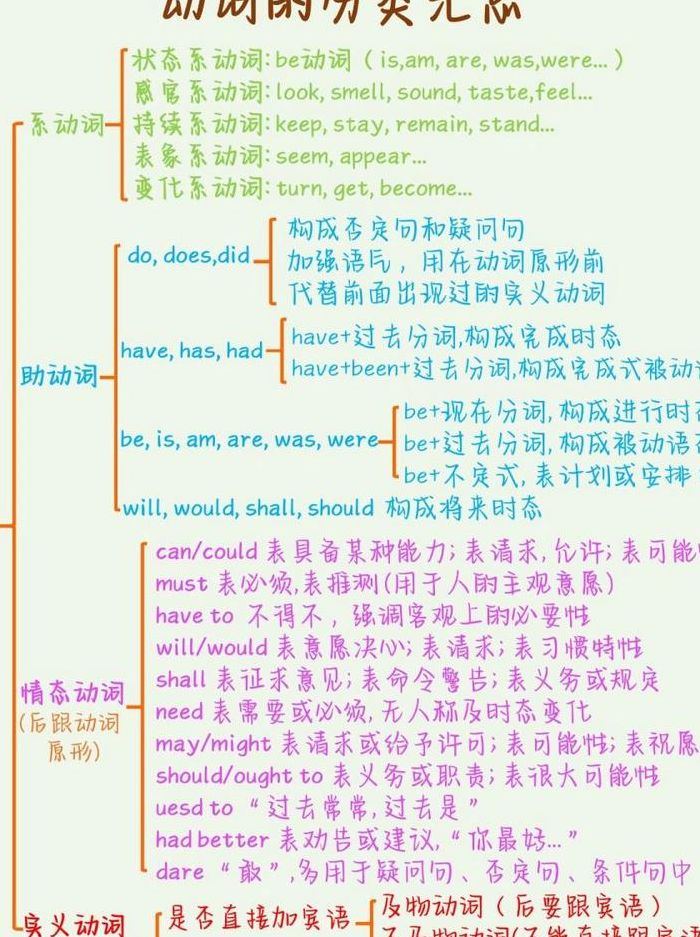 动词的分类汇总
系动词
状态系动词: be动词 ( is,am, are, was,were... )
感官系动词: look, smell, sound, taste,feel...
持续系动词: keep, stay, remain, stand...
表象系动词: seem, appear...
变化系动词: turn, get, become...
助动词
do, does,did
构成否定句和疑问句
加强语气，用在动词原形前
代替前面出现过的实义动词
have, has, had
have+过去分词,构成完成时态
have+been+过去分词,构成完成式被动
be, is, am, are, was, were
be+现在分词, 构成进行时
be+过去分词, 构成被动语
be+不定式, 表计划或安排
will, would, shall, should 构成将来时态
情态动词
(后跟动词
原形)
can/could 表具备某种能力; 表请求, 允许; 表可能
must 表必须,表推测(用于人的主观意愿)
have to 不得不，强调客观上的必要性
will/would 表意愿决心; 表请求; 表习惯特性
shall 表征求意见; 表命令警告; 表义务或规定
need 表需要或必须, 无人称及时态变化
may/might 表请求或给予许可; 表可能性; 表祝愿
should/ought to 表义务或职责; 表很大可能性
uesd to “过去常常, 过去是”
had better 表劝告或建议, “你最好...”
dare “敢”,多用于疑问句、否定句、条件句中
实义动词
是否直接加宾语
及物动词（后要跟宾语）
不及物动词(不能直接跟宾语